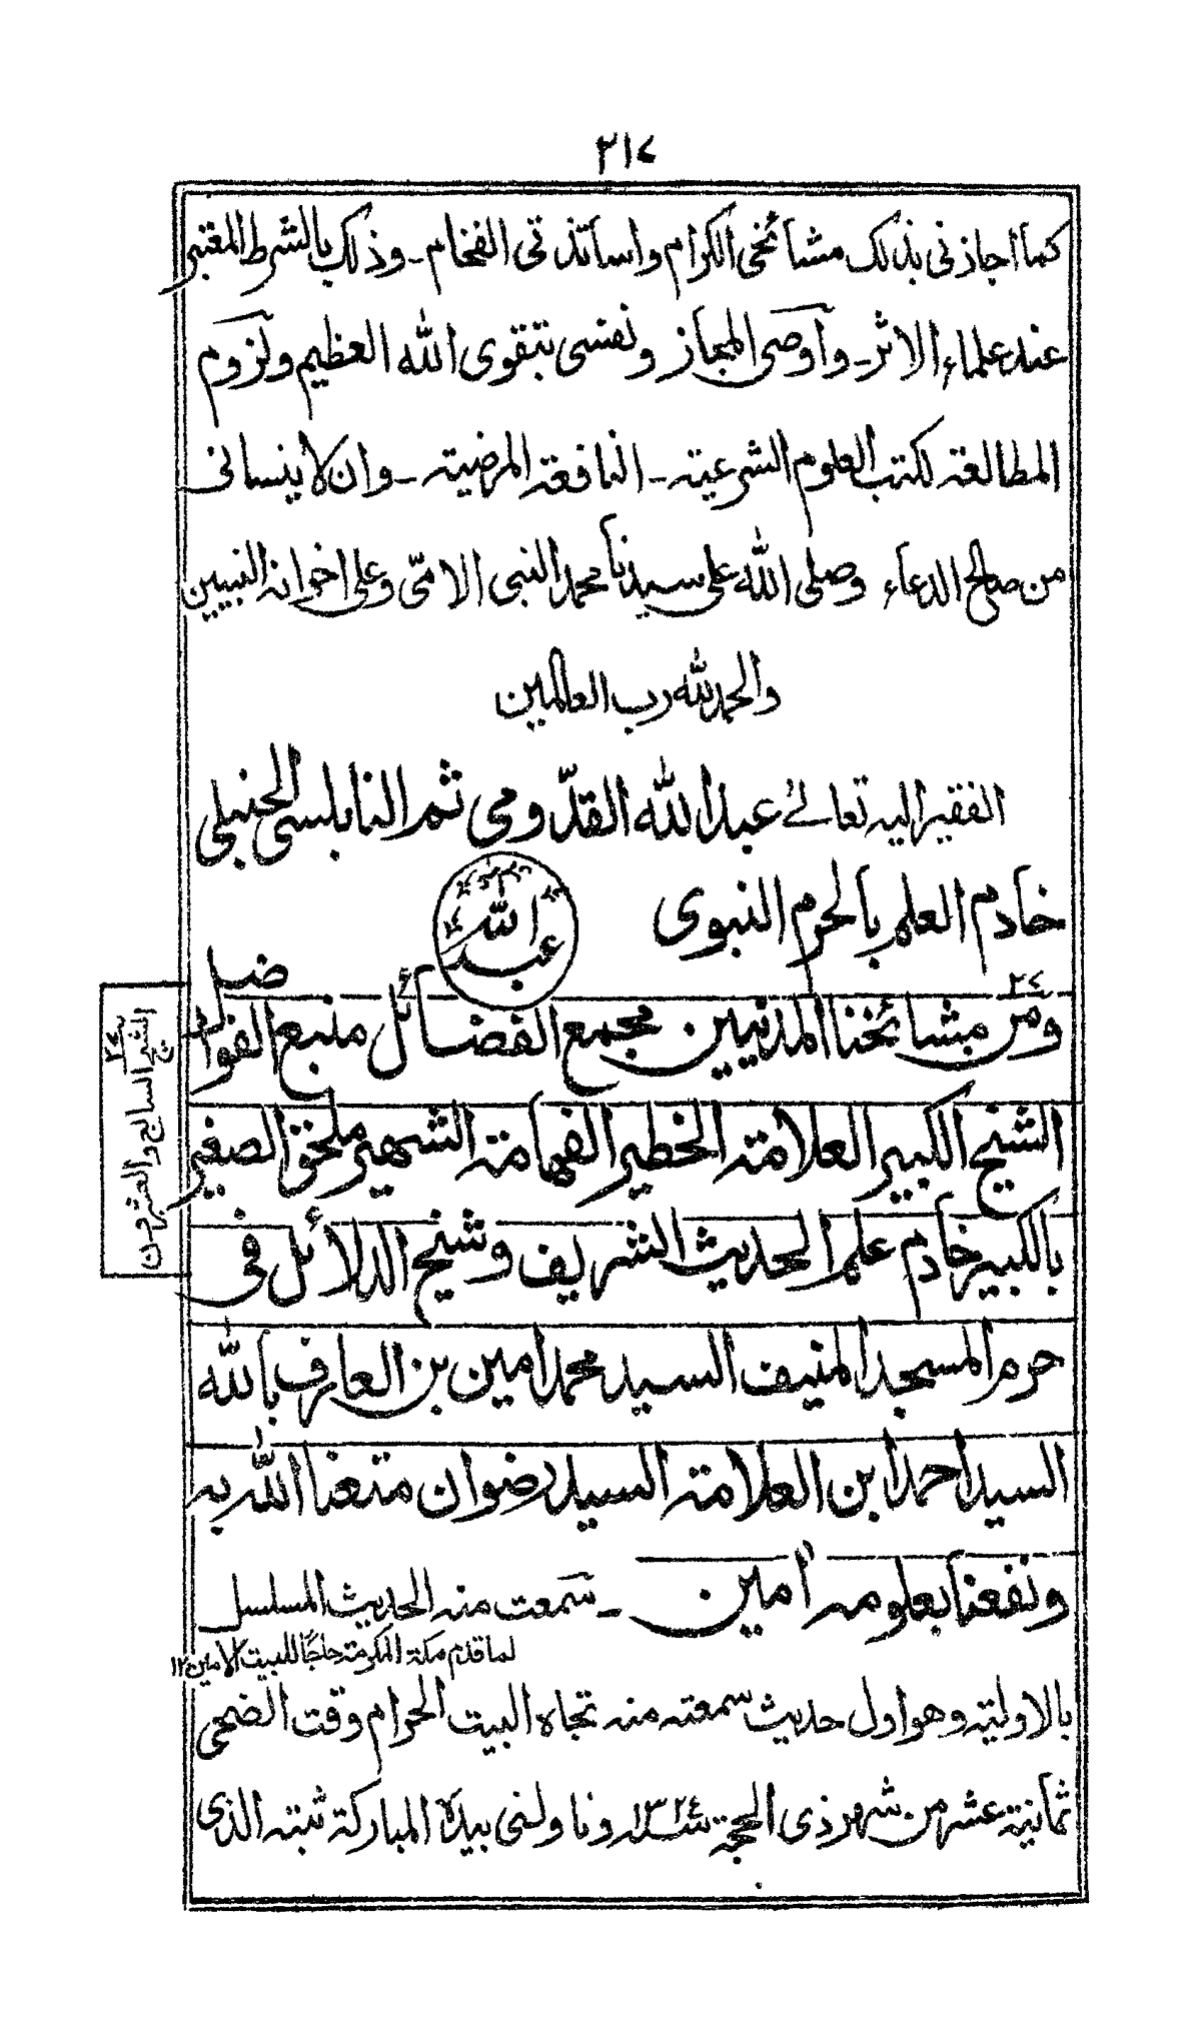 ٢١٧
كما اجازنى بذلك مشائخى الكرام واساتذتى الفخام ـ وذلك بالشرط المعتبر
عند علماء الاثر ـ وأوصى المجاز ونفسى بتقوى الله العظيم ولزوم
المطالعة لكتب العلوم الشرعية ـ النافعة المرضية ـ وان لا ينسانى
من صالح الدعاء وصلى الله على سيدنا محمد النبى الامّى وعلى اخوانه النبيين
والحمد لله رب العالمين
الفقير اليه تعالىٰ عبد الله القدّومى ثم النابلسى الحنبلى
خادم العلم بالحرم النبوى
عبد الله
٢٧
ومن مشائخنا المدنيين مجمع الفضائل منبع الفواضل
الشيخ الكبير العلامة الخطير الفهامة الشهير ملحق الصغير
بالكبير خادم علم الحديث الشريف وشيخ الدلائل فى
حرم المسجد المنيف السيد محمد امين بن العارف بالله
السيد احمد ابن العلامة السيد رضوان متعنا الله به
ونفعنا بعلومه اٰمين ـ سمعت منه الحديث المسلسل
لما قدم مكة المكرمة حاجًا للبيت الامين ١٢
بالاولية وهو اول حديث سمعته منه تجاه البيت الحرام وقت الضحى
ثمانية عشر من شهر ذى الحجة سنة ١٣٢٤ وناولنى بيده المباركة ثبته الذى
الشيخ السابع والعشرون
٢٧